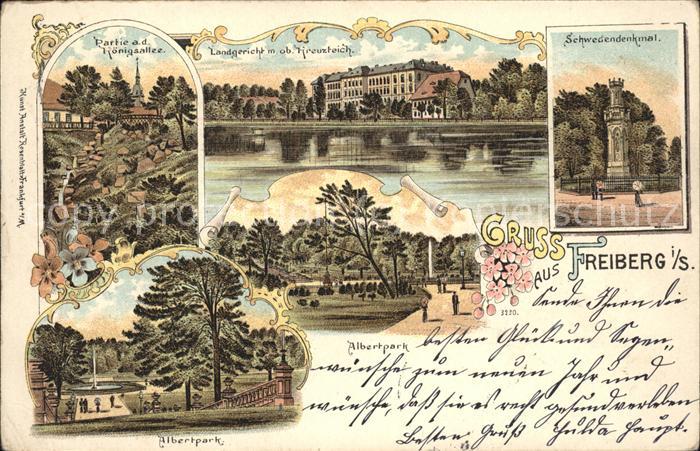 Partie a.d.
Königsallee.
Landgericht m. ob. Kreuzteich.
Schwedendenkmal.
Kunst Anstalt Rosenblatt Frankfurt a/M.
Gruss
aus
Freiberg i/S.
3220.
Albertpark
Albertpark.
Sende Ihnen die
besten Glück und Segen,
wünsche zum neuen Jahr und
wünsche, daß sie es recht gesund verleben
Besten Gruß Hulda Haupt.